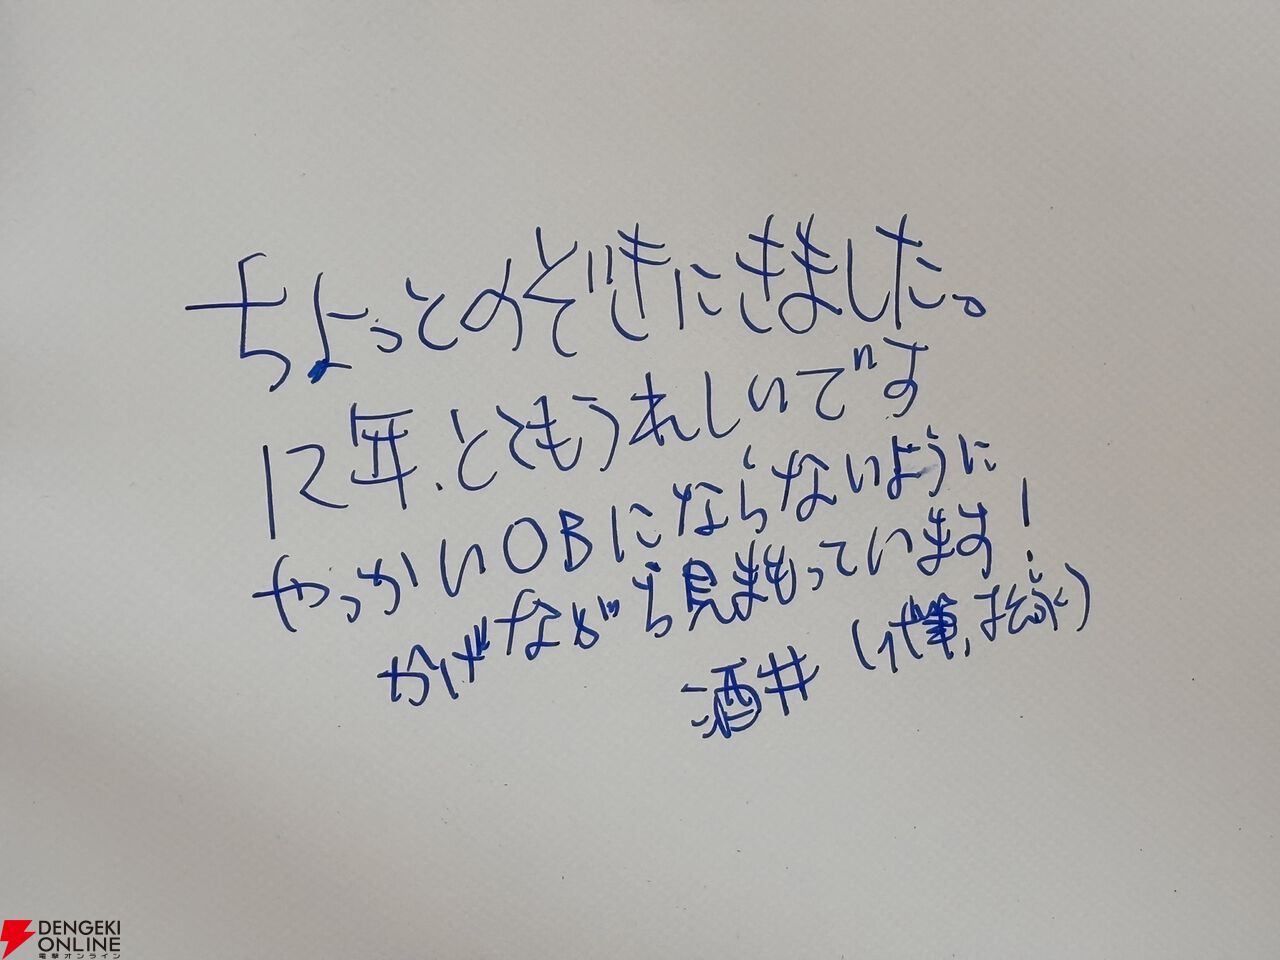 ちょっとのぞきにきました。
12年、とてもうれしいです
やっかいOBにならないように
かげながら見まもっています!
酒井 (代筆,
DENGEKI
ONLINE
電撃オンライン